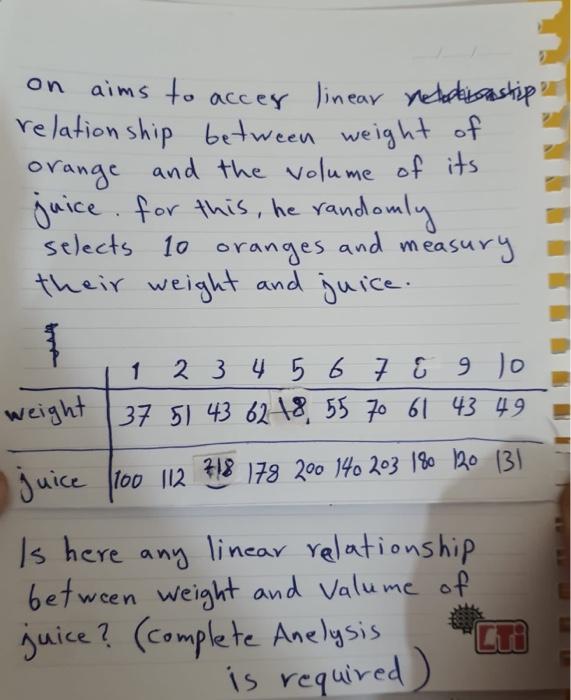 on aims to accer linear
relationship between weight of
orange and the volume of its
juice. for this, he randomly
selects 10 oranges and measury
their weight and juice.
1 2 3 4 5 6 7 8 9 10
weight 37 51 43 62 18 55 70 61 43 49
juice 100 112 718 178 200 140 203 180 120 131
Is here any linear relationship
between weight and Valume of
juice? (Complete Anelysis
is required)
LTi